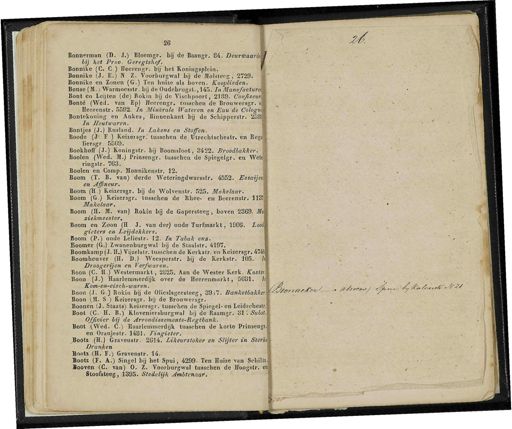 26
Bonnerman (D. J.) Bloemgr. bij de Baangr. 84. Deurwaard
bij het Prov. Geregtshof.
Bonnike (C. C.) Heerengr. bij het Koningsplein.
Bonnike (J. E.) N. Z. Voorburgwal bij de Molsteeg, 2729.
Bonnike en Zonen (G.) Ten huize als boven. Kooplieden.
Bonse (M.) Warmoesstr. bij de Oudebrugst., 145. In Manufactur
Bont en Leijten (de) Rokin bij de Vischpoort, 2189. Coeffeur
Bonté (Wed. van Ep) Heerengr. tusschen de Brouwersgr.
Heerenstr. 5592. In Minerale Wateren en Eau de Cologn
Bontekoning en Aukes, Binnenkant bij de Schipperstr.
In Houtwaren.
Bontjes (J.) Rusland. In Lakens en Stoffen.
Boode (J. F.) Keizersgr. tusschen de Utrechtschestr. en Reg
liersgr. 5569.
Bookhoff (J.) Koningstr. bij Boomsloot, 3422. Broodbakker.
Boolen (Wed. M.) Prinsengr. tusschen de Spiegelgr. en
ringstr. 763.
Boolen en Comp. Monnikenstr. 12.
Boom (T. B. van) derde Weteringdwarsstr. 4552. Essaijeu
en Affineur.
Boom (H.) Keizersgr. bij de Wolvenstr. 525. Makelaar.
Boom (G.) Keizersgr. tusschen de Rhee- en Beerenstr.
Makelaar.
Boom (H. M. van) Rokin bij de Gapersteeg, boven 2369.
ziekmeester.
Boom en Zoon (H. J. van der) oude Turfmarkt, 1906. Lood
gieters en Leijdekkers.
Boom (P.) oude Leliestr. 12. In Tabak enz.
Boomer (G.) Zwanenburgwal bij de Staalstr. 4197.
Boomkamp (J. H.) Vijzelstr. tusschen de Kerkstr. en Keizersgr.
Boomhouwer (H. D.) Weesperstr. bij de Kerkstr. 105. I
Droogerijen en Verfwaren.
Boon (C. H.) Westermarkt, 2825. Aan de Wester Kerk. Koster
Boon (J.) Haarlemmerdijk over de Heerenmarkt, 9681. I
Kom-en-tisch-waren.
Boon (J. G.) Rokin bij de Olieslagersteeg, Banketbakker
Boon (H. S.) Keizersgr. bij de Brouwersgr.
Boonen (J. Staats) Keizersgr. tusschen de Spiegel- en Leidschestr.
Boot (C. H. B.) Kloveniersburgwal bij de Raamgr. Subst.
Officier bij de Arrondissements-Regtbank.
Boot (Wed. C.) Haarlemmerdijk tusschen de korte Prinsengr
en Oranjestr. 1481. Tingieter.
Boots (H.) Gravenstr. 2614. Likeurstoker en Slijter in Sterke
Dranken
Boots (H. F.) Gravenstr. 14.
Boots (F. A.) Singel bij het Spui, 4299. Ten Huize van Schilt
Booven (C. van) O. Z. Voorburgwal tusschen de Hoogstr. en
Stoofsteeg, 1395. Stedelijk Ambtenaar.
26.